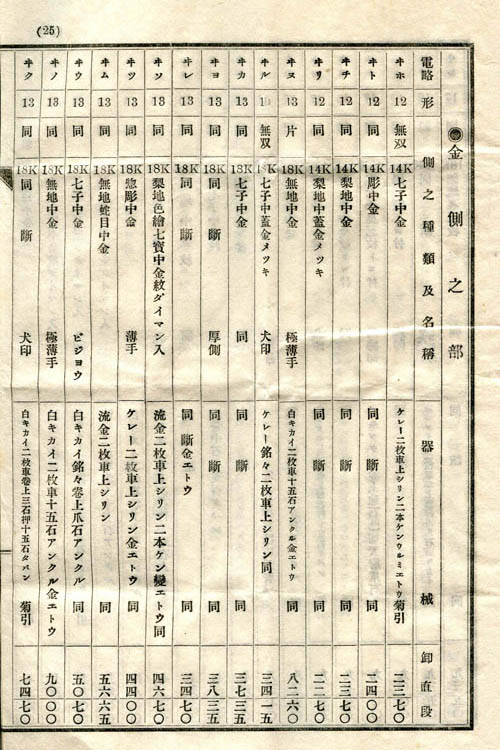 (25)
金側之部
電略 形 側之種類及名稱 器械 卸直段
ヰホ 12 無双 14K七子中金 ケレー二枚車上シリン二本ケンウルミエトウ菊引 二三七〇
ヰト 12 同 14K彫中金 同 同 二四〇〇
ヰチ 12 同 14K梨地中金 同 斷 同 二三七〇
ヰリ 12 同 14K梨地中蓋金メツキ 同 斷 同 二二七〇
ヰヌ 13 片 18K無地中金 極薄手 白キカイ二枚車十五石アンクル金エトウ 同 八二六〇
ヰル 無双 18K七子中蓋金メツキ 犬印 ケレー銘々二枚車上シリン同 同 三四一五
ヰカ 13 同 18K七子中金 同 同 斷 同 三七三五
ヰヨ 13 同 18K同 斷 厚側 同 斷 同 三八三五
ヰレ 13 同 18K同 斷 同 斷金エトウ 同 三四七〇
ヰソ 13 同 18K梨地色繪七寶中金紋ダイマン入 流金二枚車上シリン二本ケン變エトウ同 四六七〇
ヰツ 13 同 18K惣彫中金 薄手 ケレー二枚車上シリン金エトウ 同 四四〇〇
ヰム 13 同 18K無地蛇目中金 流金二枚車上シリン 同 五六六五
ヰウ 13 同 18K七子中金 ビジヨウ 白キカイ銘々卷上爪石アンクル 同 五〇七〇
ヰノ 13 同 18K無地中金 極薄手 白キカイ二枚車十五石アンクル金エトウ 九〇〇〇
ヰク 13 同 18K同 斷 犬印 白キカイ二枚車卷上三石押十五石タバン 菊引 七四七〇